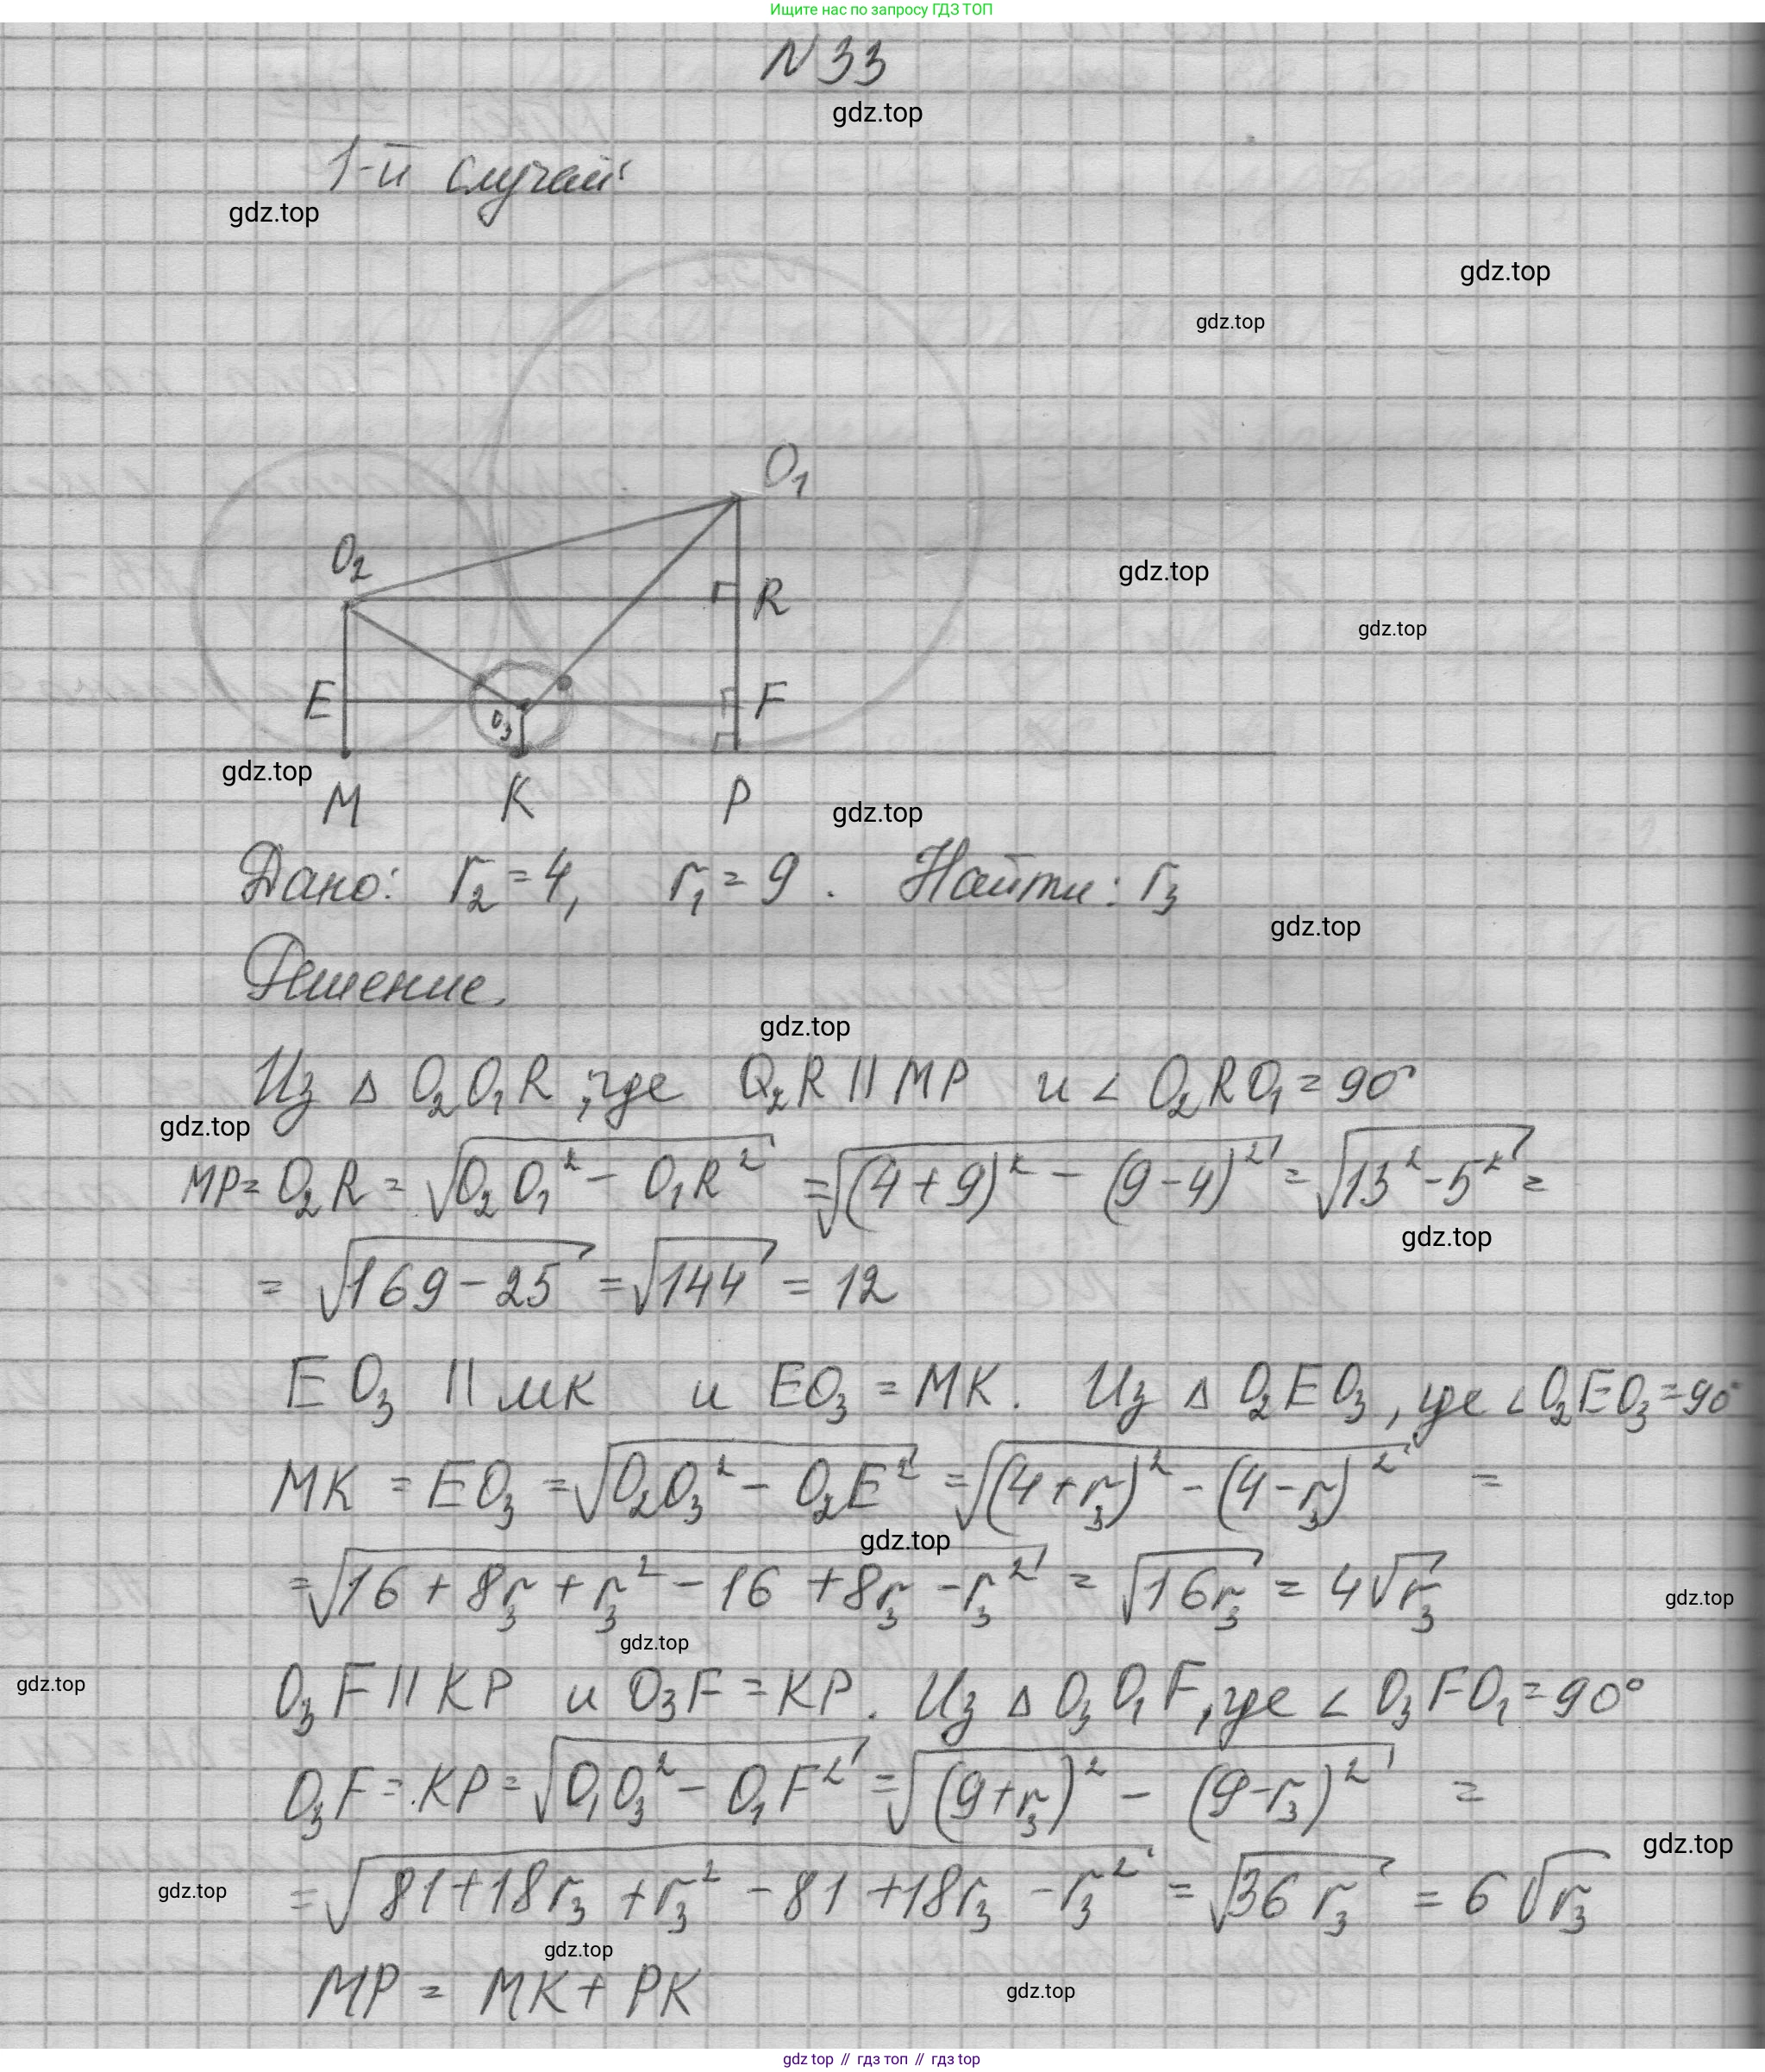 Ищите нас по запросу ГДЗ ТОП
N 33
gdz.top
1-й случай:
gdz.top
gdz.top
gdz.top
O₁
O₂
gdz.top
R
gdz.top
E
O₃
F
gdz.top
M K P
gdz.top
Дано: r₂ = 4, r₁ = 9. Найти: r₃
gdz.top
Решение.
gdz.top
Из Δ O₂O₁R, где O₂R || MP и ∠ O₂RO₁ = 90°
gdz.top
MP = O₂R = √(O₂O₁² − O₁R²) = √((4+9)² − (9−4)²) = √(13² − 5²) =
gdz.top
= √(169 − 25) = √144 = 12
EO₃ || МК и EO₃ = MK. Из Δ O₂EO₃, где ∠O₂EO₃ = 90°
MK = EO₃ = √(O₂O₃² − O₂E²) = √((4+r₃)² − (4−r₃)²) =
gdz.top
= √(16 + 8r₃ + r₃² − 16 + 8r₃ − r₃²) = √(16r₃) = 4√r₃
gdz.top
gdz.top
gdz.top
O₃F || KP и O₃F = KP. Из Δ O₃O₁F, где ∠ O₃FO₁ = 90°
O₃F = KP = √(O₁O₃² − O₁F²) = √((9+r₃)² − (9−r₃)²) =
gdz.top
gdz.top
= √(81 + 18r₃ + r₃² − 81 + 18r₃ − r₃²) = √(36r₃) = 6√r₃
gdz.top
MP = MK + PK
gdz.top
gdz top // гдз топ // гдз top